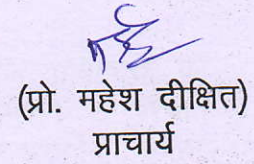 (प्रो. महेश दीक्षित)
प्राचार्य